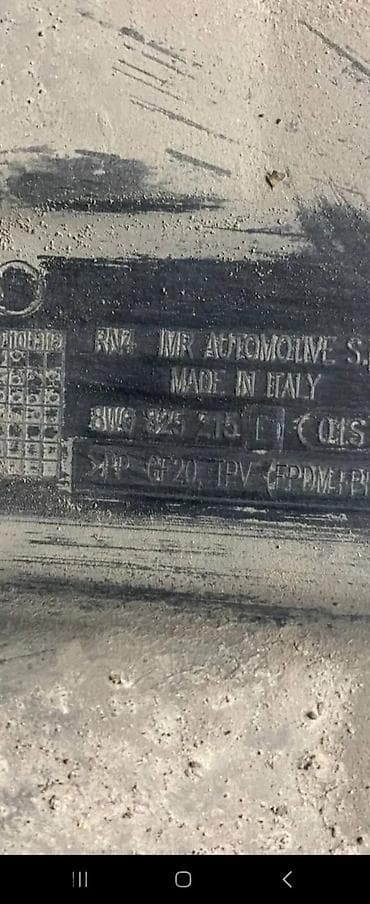 RNZ IMR AUTOMOTIVE S.
MADE IN ITALY
8W0 825 215
>PP GF20, TPV (EPDM+P